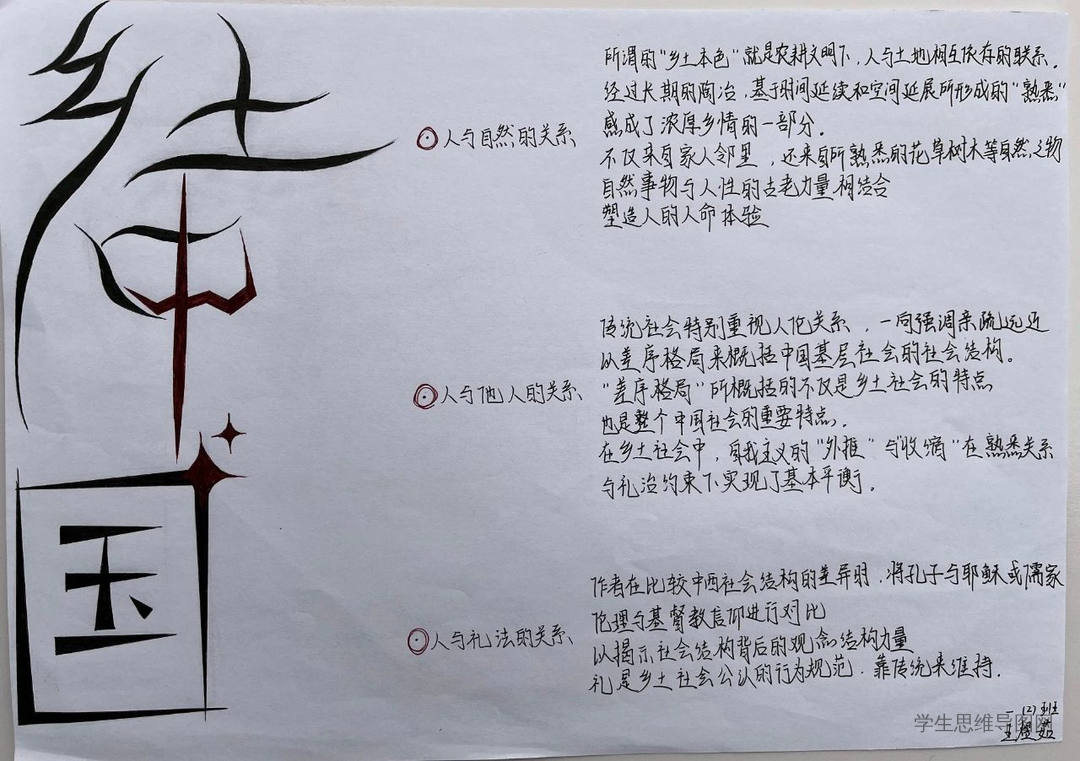 乡土中国
人与自然的关系
所谓的“乡土本色”就是农耕文明下，人与土地相互依存的联系．
经过长期的陶冶，基于时间延续和空间延展所形成的“熟悉”
感成了浓厚乡情的一部分．
不仅来自家人邻里，还来自所熟悉的花草树木等自然之物
自然事物与人性的古老力量相结合
塑造人的人命体验
人与他人的关系
传统社会特别重视人伦关系，一向强调亲疏远近
以差序格局来概括中国基层社会的社会结构。
“差序格局”所概括的不仅是乡土社会的特点
也是整个中国社会的重要特点．
在乡土社会中，自我主义的“外推”与“收缩”在熟悉关系
与礼治约束下实现了基本平衡．
人与礼法的关系
作者在比较中西社会结构的差异时．将孔子与耶稣或儒家
伦理与基督教信仰进行对比
以揭示社会结构背后的观念结构力量
礼是乡土社会公认的行为规范．靠传统来维持．
一（2）班
学生思维导图网
王